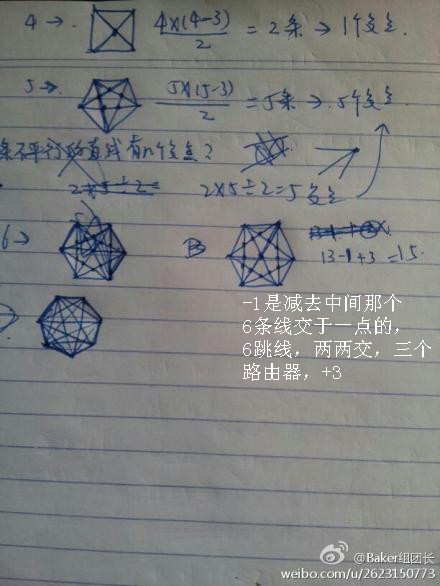 4→. 4×(4-3)/2 = 2条 → 1个交点.
5→. 5×(5-3)/2 = 5条 → 5个交点
条不平行的直线有n个交点?
2×5÷2= 2×5÷2=5交点
6→ B 13-1+3=15.
-1是减去中间那个
6条线交于一点的,
6跳线，两两交，三个
路由器，+3
@Baker组团长
weibo.com/u/2623150773